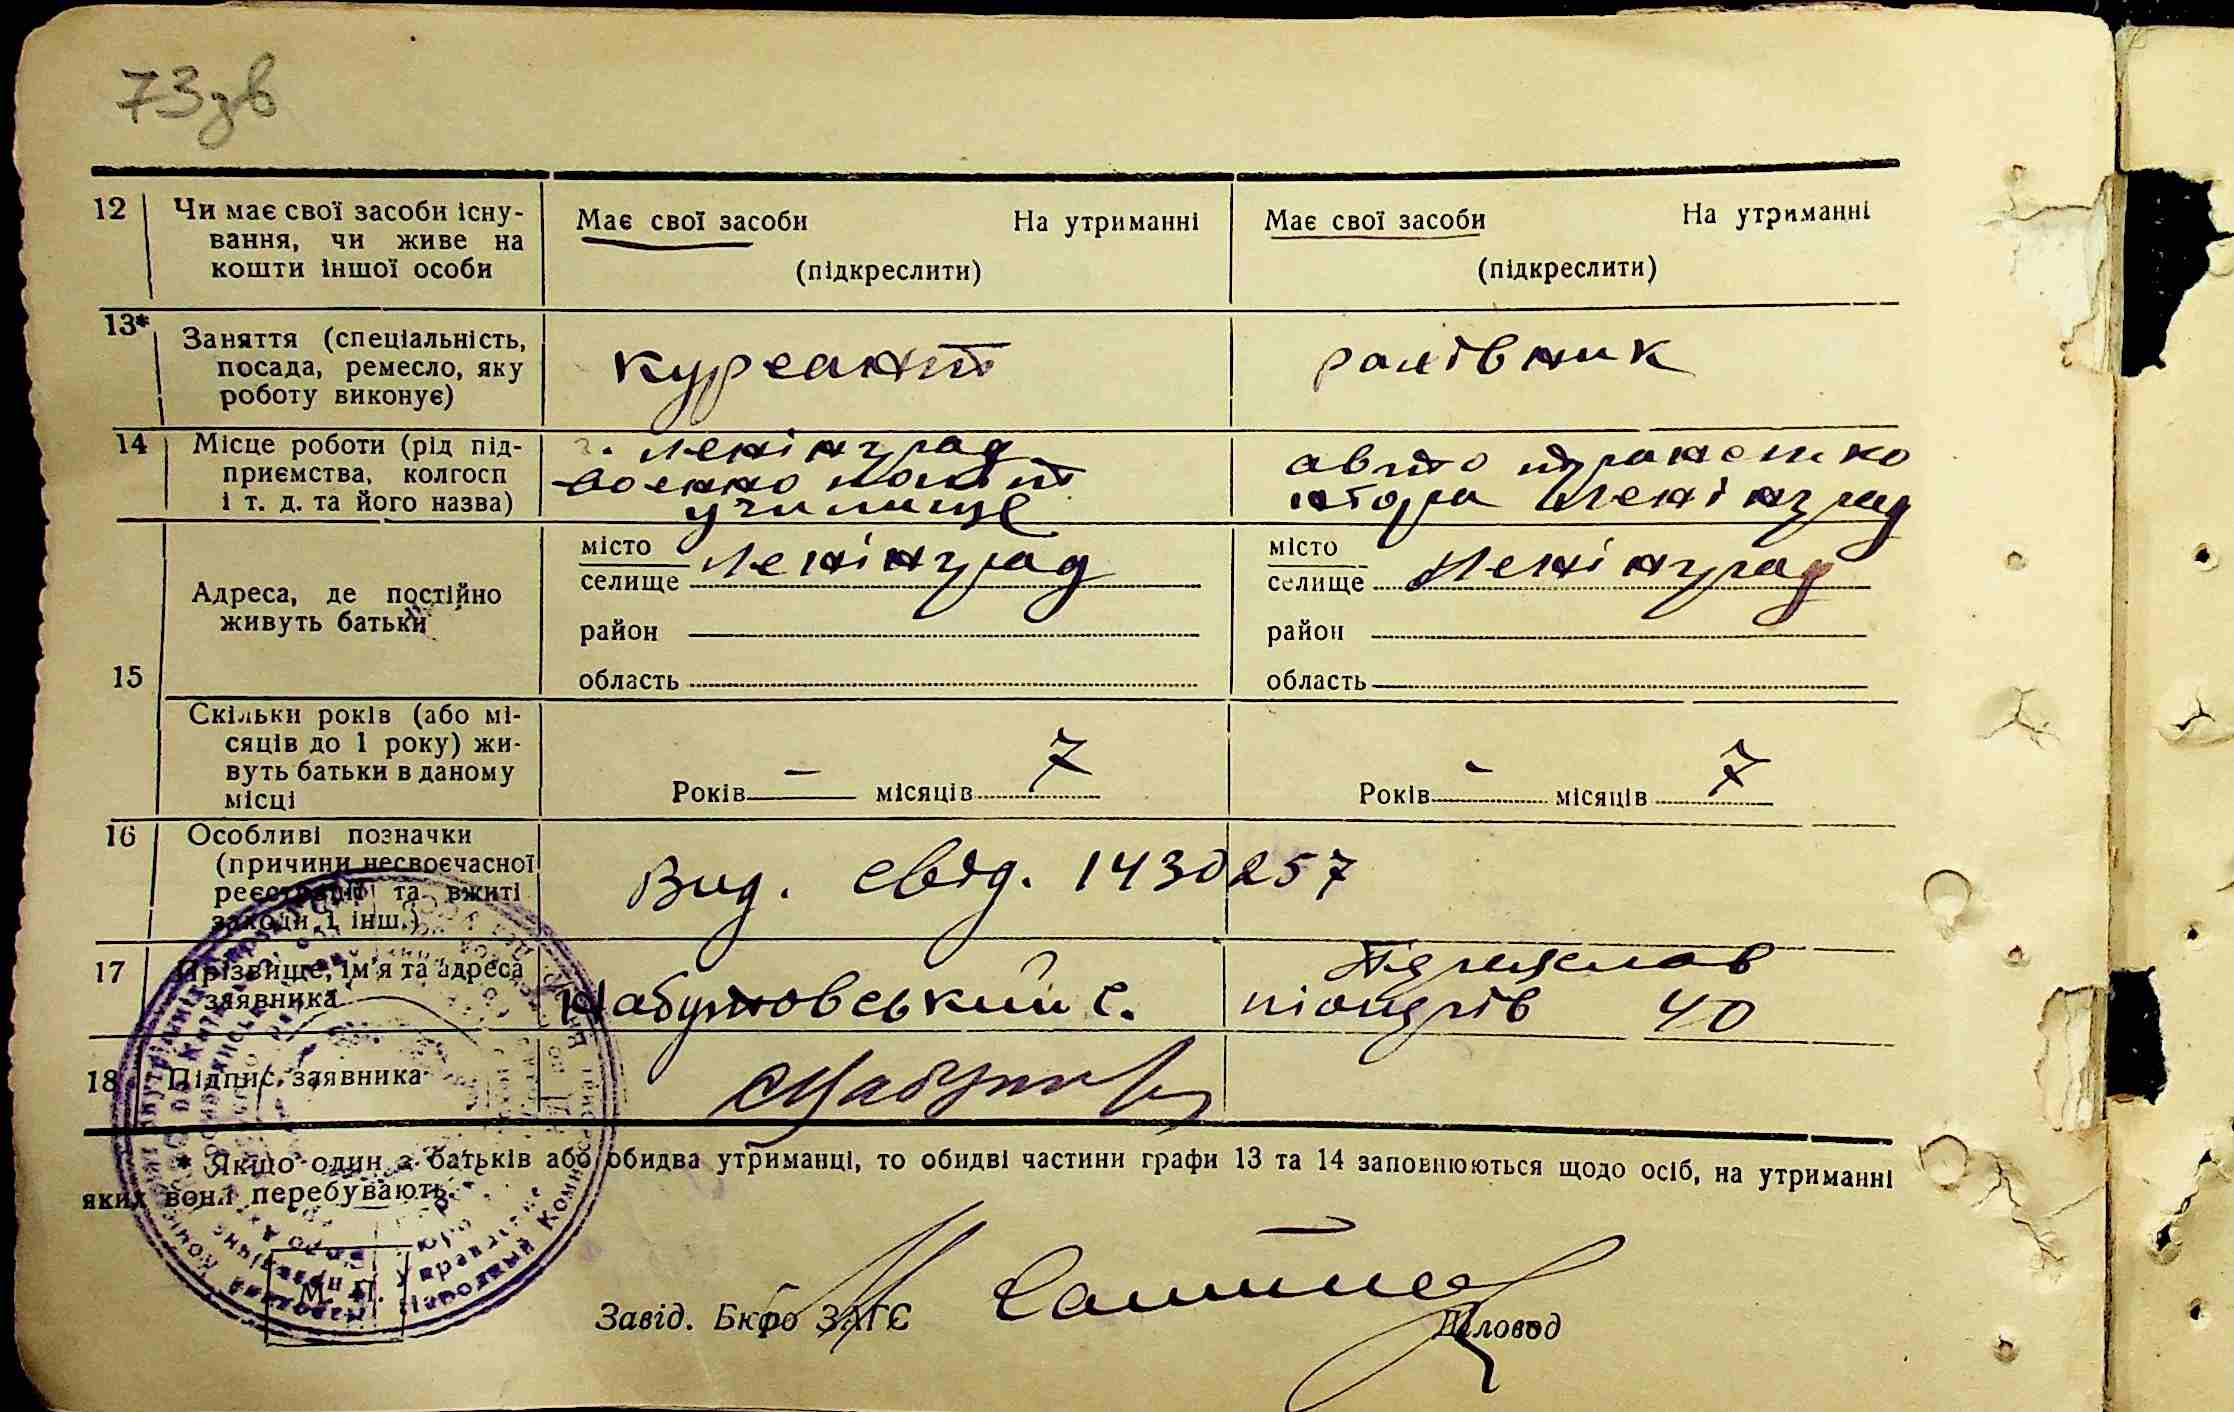 73зв
12 Чи має свої засоби існу-
вання, чи живе на
кошти іншої особи
Має свої засоби На утриманні
(підкреслити)
Має свої засоби На утриманні
(підкреслити)
13* Заняття (спеціальність,
посада, ремесло, яку
роботу виконує)
курсант
рахівник
14 Місце роботи (рід під-
приємства, колгосп
і т. д. та його назва)
г. Ленінград
военно политт
училище
авто трансп ко
нтора Ленінград
15
Адреса, де постійно
живуть батьки
місто
селище Ленінград
район
область
місто
селище Ленінград
район
область
Скільки років (або мі-
сяців до 1 року) жи-
вуть батьки в даному
місці
Років — місяців 7
Років - місяців 7
16 Особливі позначки
(причини несвоєчасної
реєстрації та вжиті
заходи і інш.)
Вид. свід. 1430257
17 Прізвище, ім'я та адреса
заявника
с.
40
18 Підпис заявника
* Якщо один з батьків або обидва утриманці, то обидві частини графи 13 та 14 заповнюються щодо осіб, на утриманні
яких вони перебувають.
М. П.
Завід. Бюро ЗАГС
Діловод